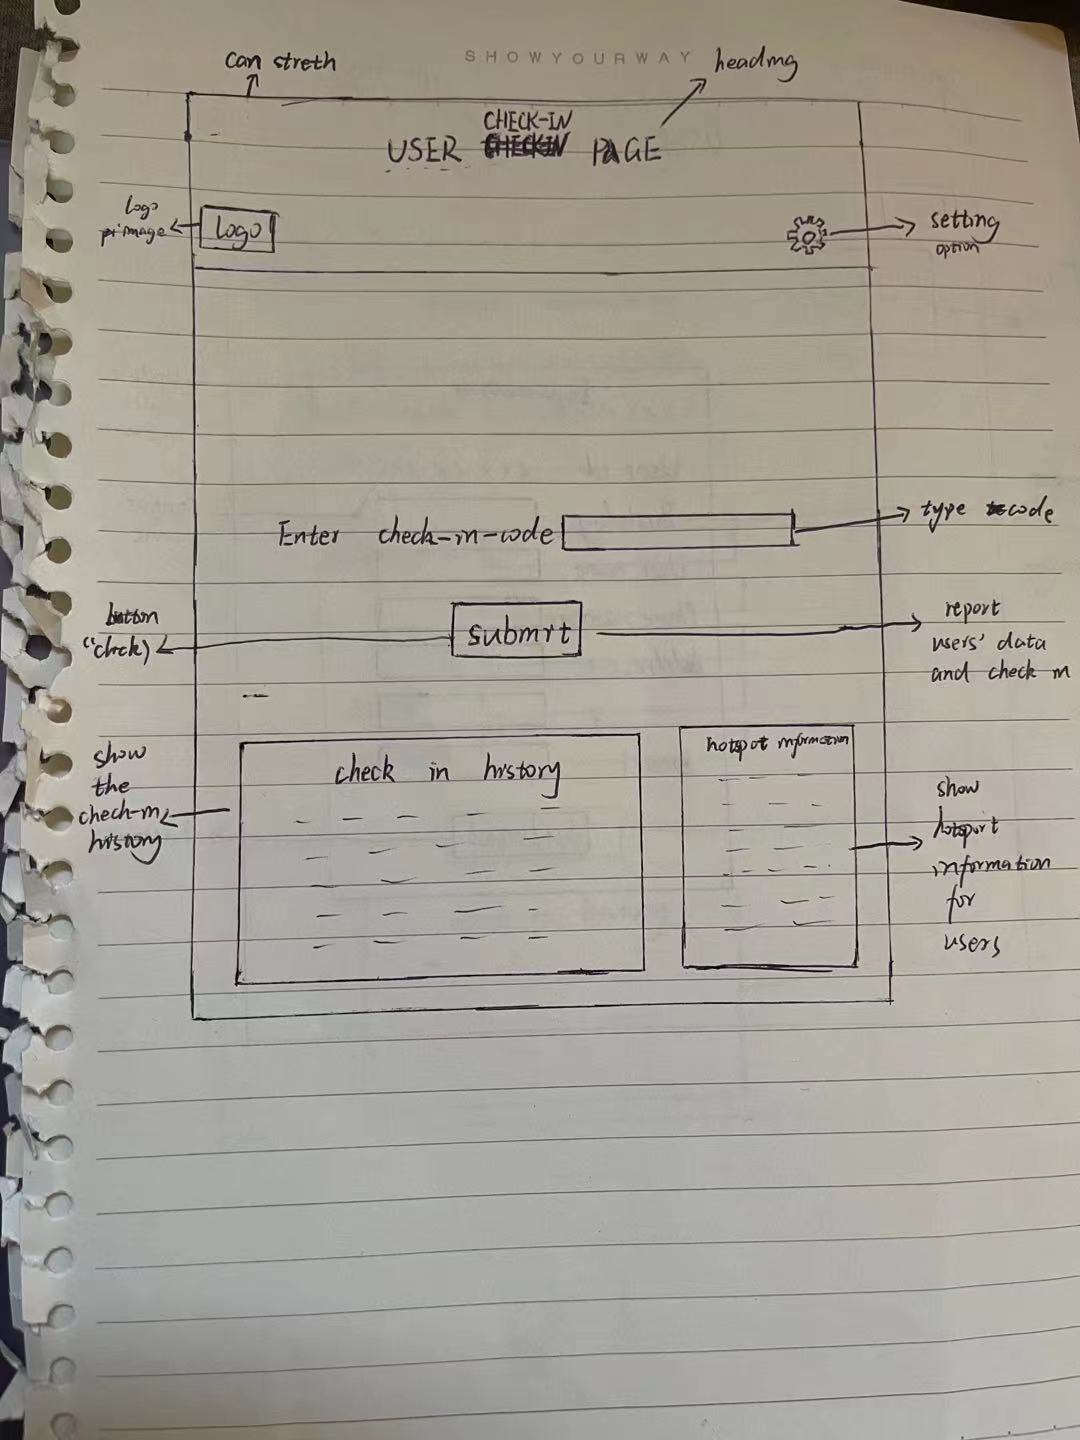 SHOWYOURWAY
can streth
heading
CHECK-IN
USER PAGE
Logo
image
Logo
setting
option
Enter check-in-code
type code
button
submit
report
users' data
and check in
show
the
check-in
history
check in history
hotspot information
show
hotsport
information
for
users